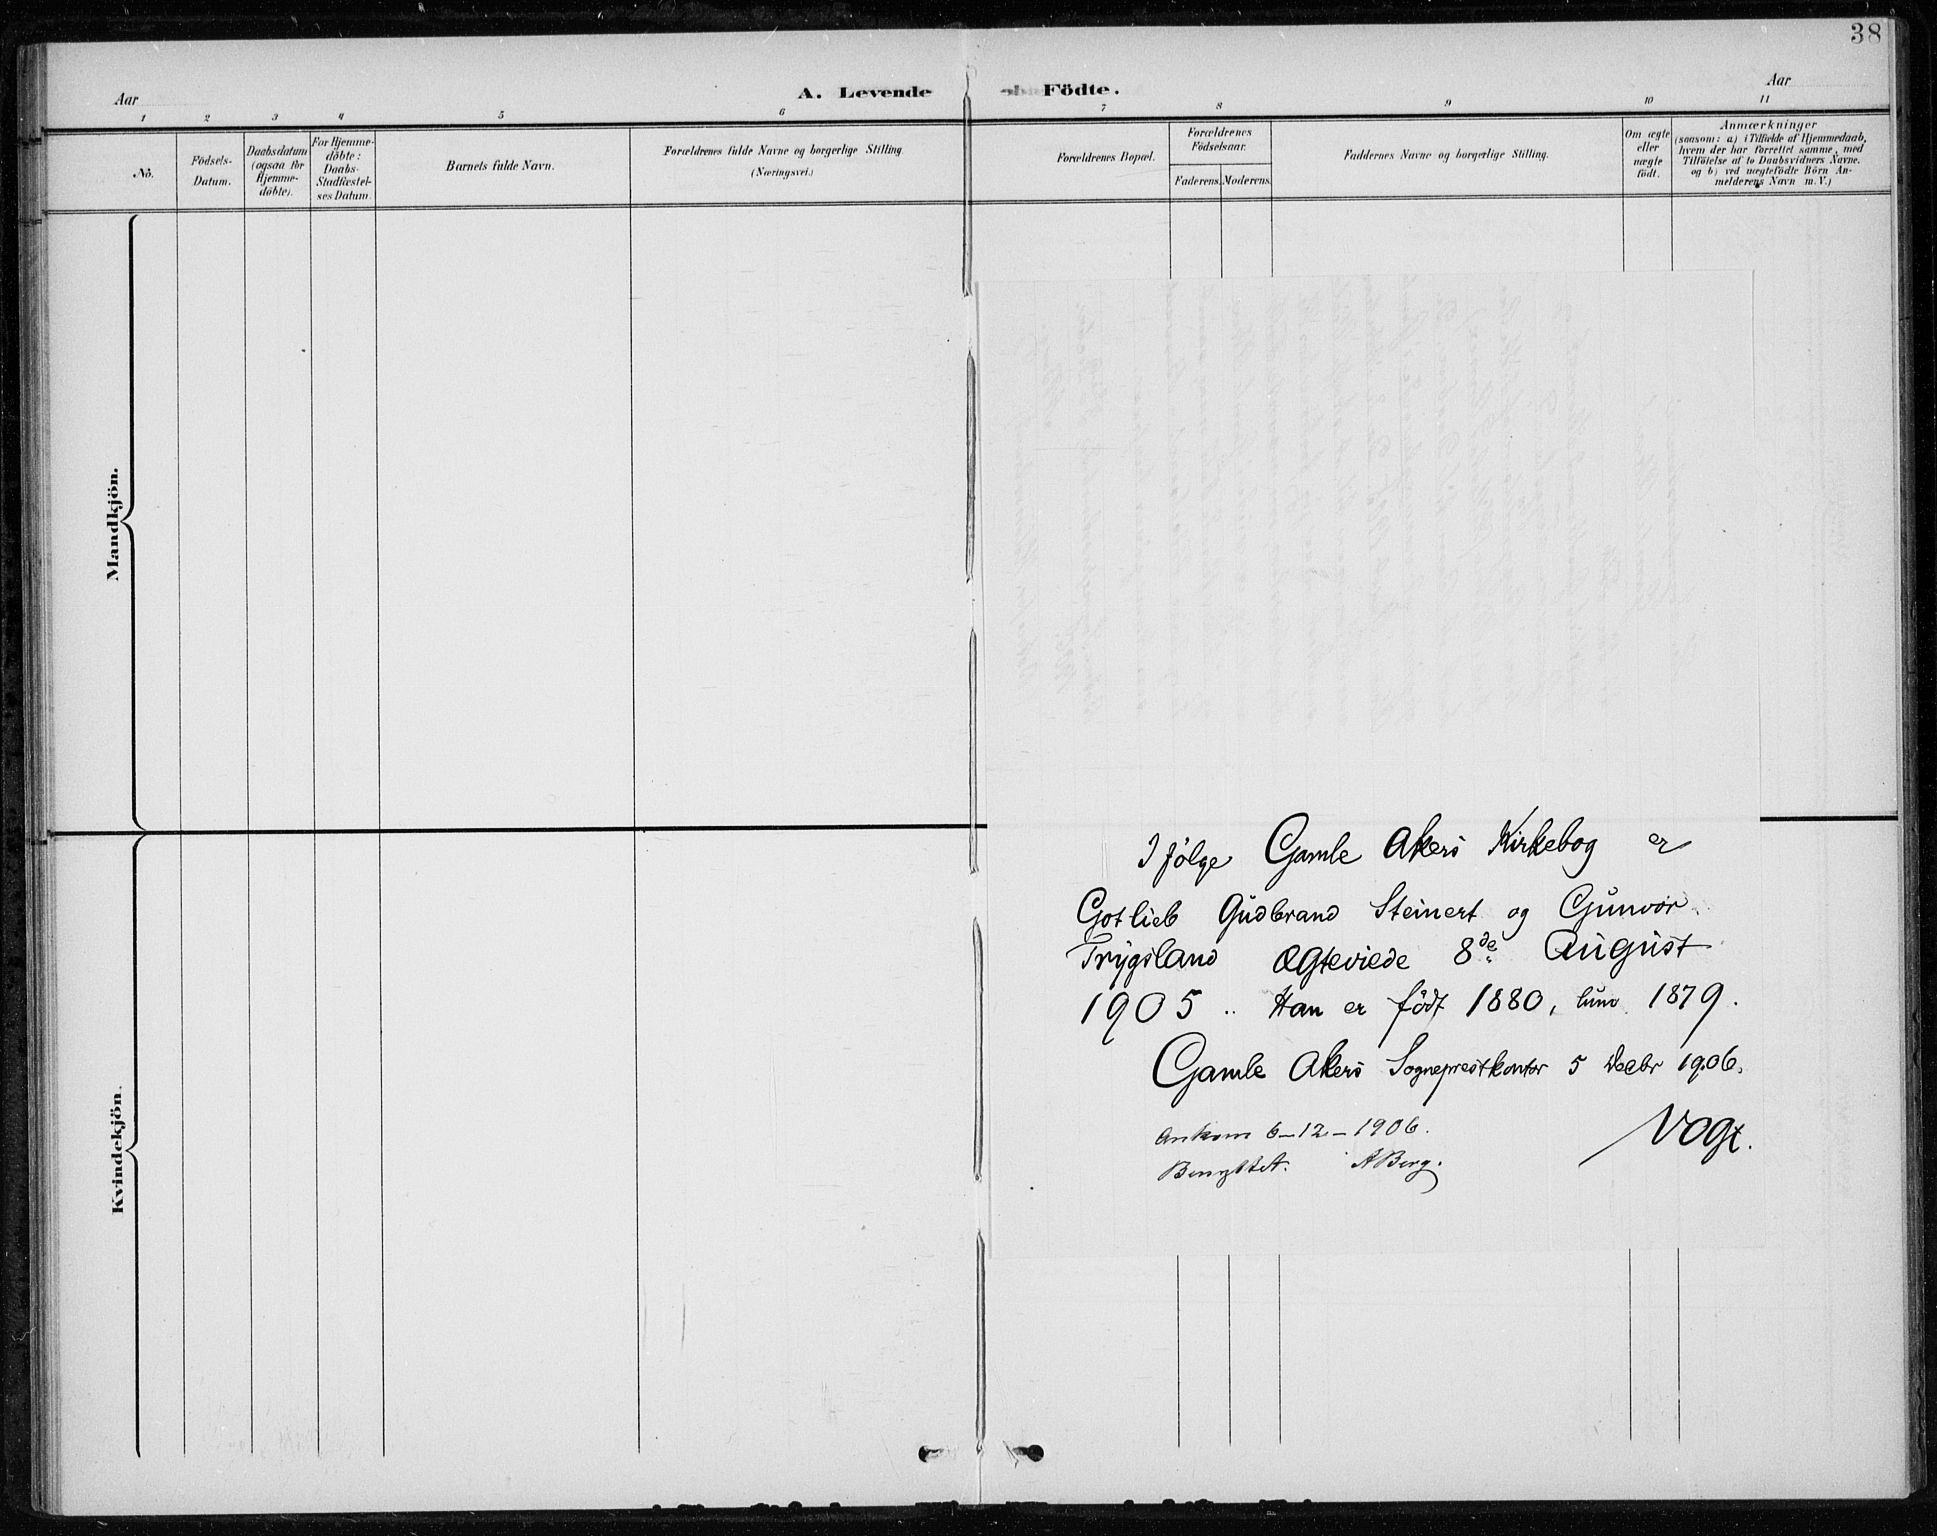 38
Aar
A. Levende Födte.
Aar
1 2 3 4 5 6 7 8 9 10 11
No.
Födsels-
Datum.
Daabsdatum
(ogsaa for
Hjemme-
döbte).
For Hjemme-
döbte:
Daabs-
Stadfæstel-
ses Datum.
Barnets fulde Navn.
Forældrenes fulde Navne og borgerlige Stilling
(Næringsvei.)
Forældrenes Bopæl.
Forældrenes
Födselsaar.
Faderens.
Moderens.
Faddernes Navne og borgerlige Stilling.
Om ægte
eller
uægte
födt.
Anmærkninger
(saasom: a) i Tilfælde af Hjemmedaab,
hvem der har forrettet samme, med
Tilföielse af to Daabsvidners Navne.
og b) ved uægtefödte Börn An-
melderens Navn m. V.)
Mandkjön.
Kvindekjön.
I følge Gamle Akers Kirkebog er
Gotlieb Gudbrand Steinert og Gunvor
Trygsland ægteviede 8de August
1905 .. Han er født 1880, hun 1879.
Gamle Akers Sogneprestkontor 5 decbr 1906.
Vogt.
Ankom 6-12-1906.
Benyttet. ABerg.